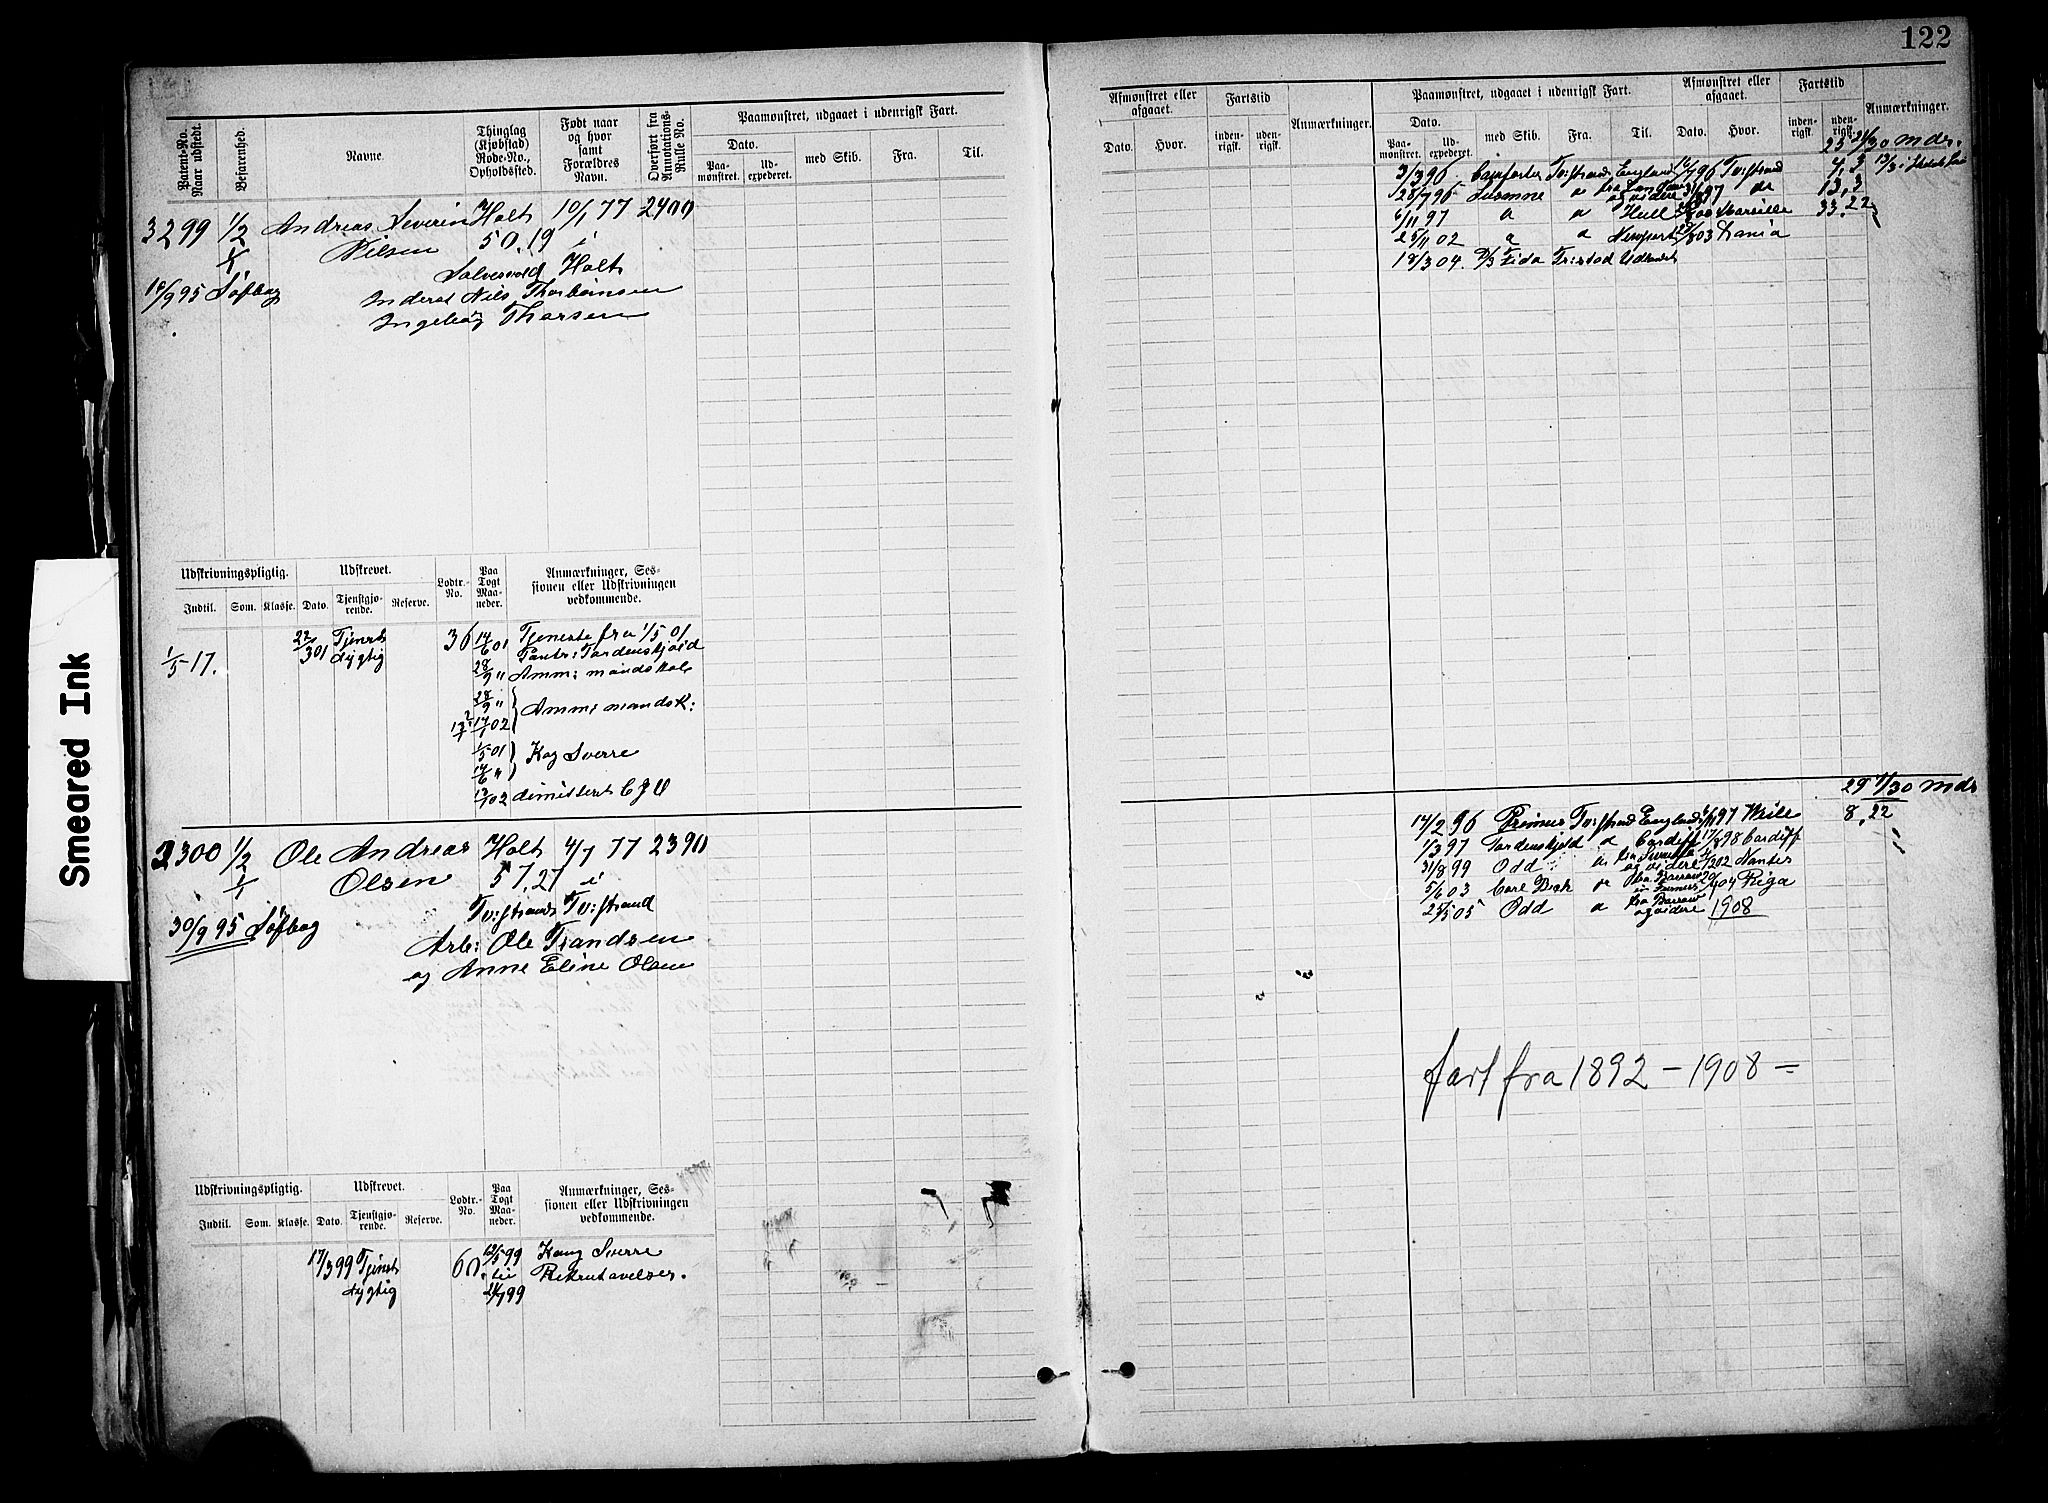 122
Smeared Ink
Patent-No. Naar udstedt.
Befarenhed.
Navne.
Thinglag (Kjøbstad) Rode-No., Opholdssted.
Født naar og hvor samt Forældres Navn.
Overført fra Annotations-Rulle No.
Paamønstret, udgaaet i udenrigsk Fart.
Dato.
Paamønstret.
Udexpederet.
med Skib.
Fra.
Til.
3299 1/2 Andreas Severin Holt 10/1 77 2400
1/1 Nilsen 50.19 i
Holt
18/9 95 Søfbog Inderst Nils Thorbørnsen
Ingeborg Thorsen
Udskrivningspligtig.
Udskrevet.
Lodtr.-No.
Paa Togt Maaneder.
Anmærkninger, Sessionen eller Udskrivningen vedkommende.
Indtil. Som. Klasse. Dato. Tjenstgjørende. Reserve.
1/5 17. 22/3 01 Tjenst dygtig 36 14/6 01 Tjeneste fra 1/5 01
Tordenskjold
28/9 " Amm: mandskab
28/9 "
17/1 02 Amm: mandsk:
1/5 01
14/6 " Kog Sverre
17/1 02 dimitteret
2300 1/2 Ole Andreas Holt 4/7 77 2390
1/1 Olsen 57.27 i
Tv:strand Tv:strand
30/9 95 Søfbog Arb: Ole Trandsen
og Anne Eline Olsen
Udskrivningspligtig.
Udskrevet.
Lodtr.-No.
Paa Togt Maaneder.
Anmærkninger, Sessionen eller Udskrivningen vedkommende.
Indtil. Som. Klasse. Dato. Tjenstgjørende. Reserve.
17/3 99 Tjenst dygtig 60. 12/5 99 Kong Sverre
til Rekrutøvelser.
24/7 99
Afmønstret eller afgaaet.
Fartstid
Anmærkninger.
Paamønstret, udgaaet i udenrigsk Fart.
Afmønstret eller afgaaet.
Fartstid
Anmærkninger.
Dato. Hvor. indenrigsk. udenrigsk.
Dato.
Paamønstret. Udexpederet. med Skib. Fra. Til. Dato. Hvor. indenrigsk. udenrigsk.
25 21/30 Mdr.
3/3 96 Tv:strand England 6/7 96 Tv:strand 4,3
28/7 96 Susanne " 97 do 13,3
6/11 97 " " Hull Marseille 33.22
25/11 02 " " Newport 03 Dania
18/3 04. D/S Fida Tv:strand Udlandet
29 7/30 Mdr
14/2 96 Primus Tv:strand England 97 8,22
1/3 97 Tordenskjold " Cardiff 17/8 98 Cardiff
31/8 99 Odd " og videre 02 Nantes
5/6 03 Carl Bech " 04 Riga
25/5 05 Odd " fra Barrow og videre 1908
fart fra 1892 – 1908 =